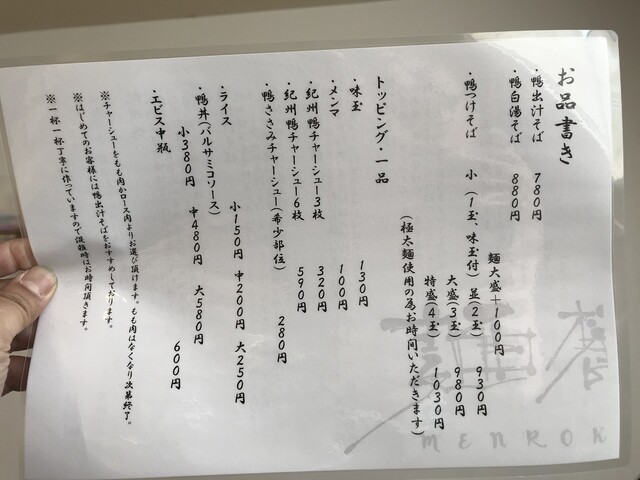 お品書き
・鴨出汁そば 780円
・鴨白湯そば 880円
麺大盛+100円
・鴨つけそば 小(1玉、味玉付)並(2玉) 930円
大盛(3玉) 980円
特盛(4玉) 1030円
(極太麺使用の為お時間いただきます)
トッピング・一品
・味玉 130円
・メンマ 100円
・紀州鴨チャーシュー3枚 320円
・紀州鴨チャーシュー6枚 590円
・鴨ささみチャーシュー(希少部位) 280円
・ライス 小150円 中200円 大250円
・鴨丼(バルサミコソース)
小380円 中480円 大580円
・エビス中瓶 600円
※チャーシューをもも肉かロース肉よりお選び頂けます。もも肉はなくなり次第終了。
※はじめてのお客様には鴨出汁そばをおすすめしております。
※一杯一杯丁寧に作っていますので混雑時はお時間頂きます。
MENROK